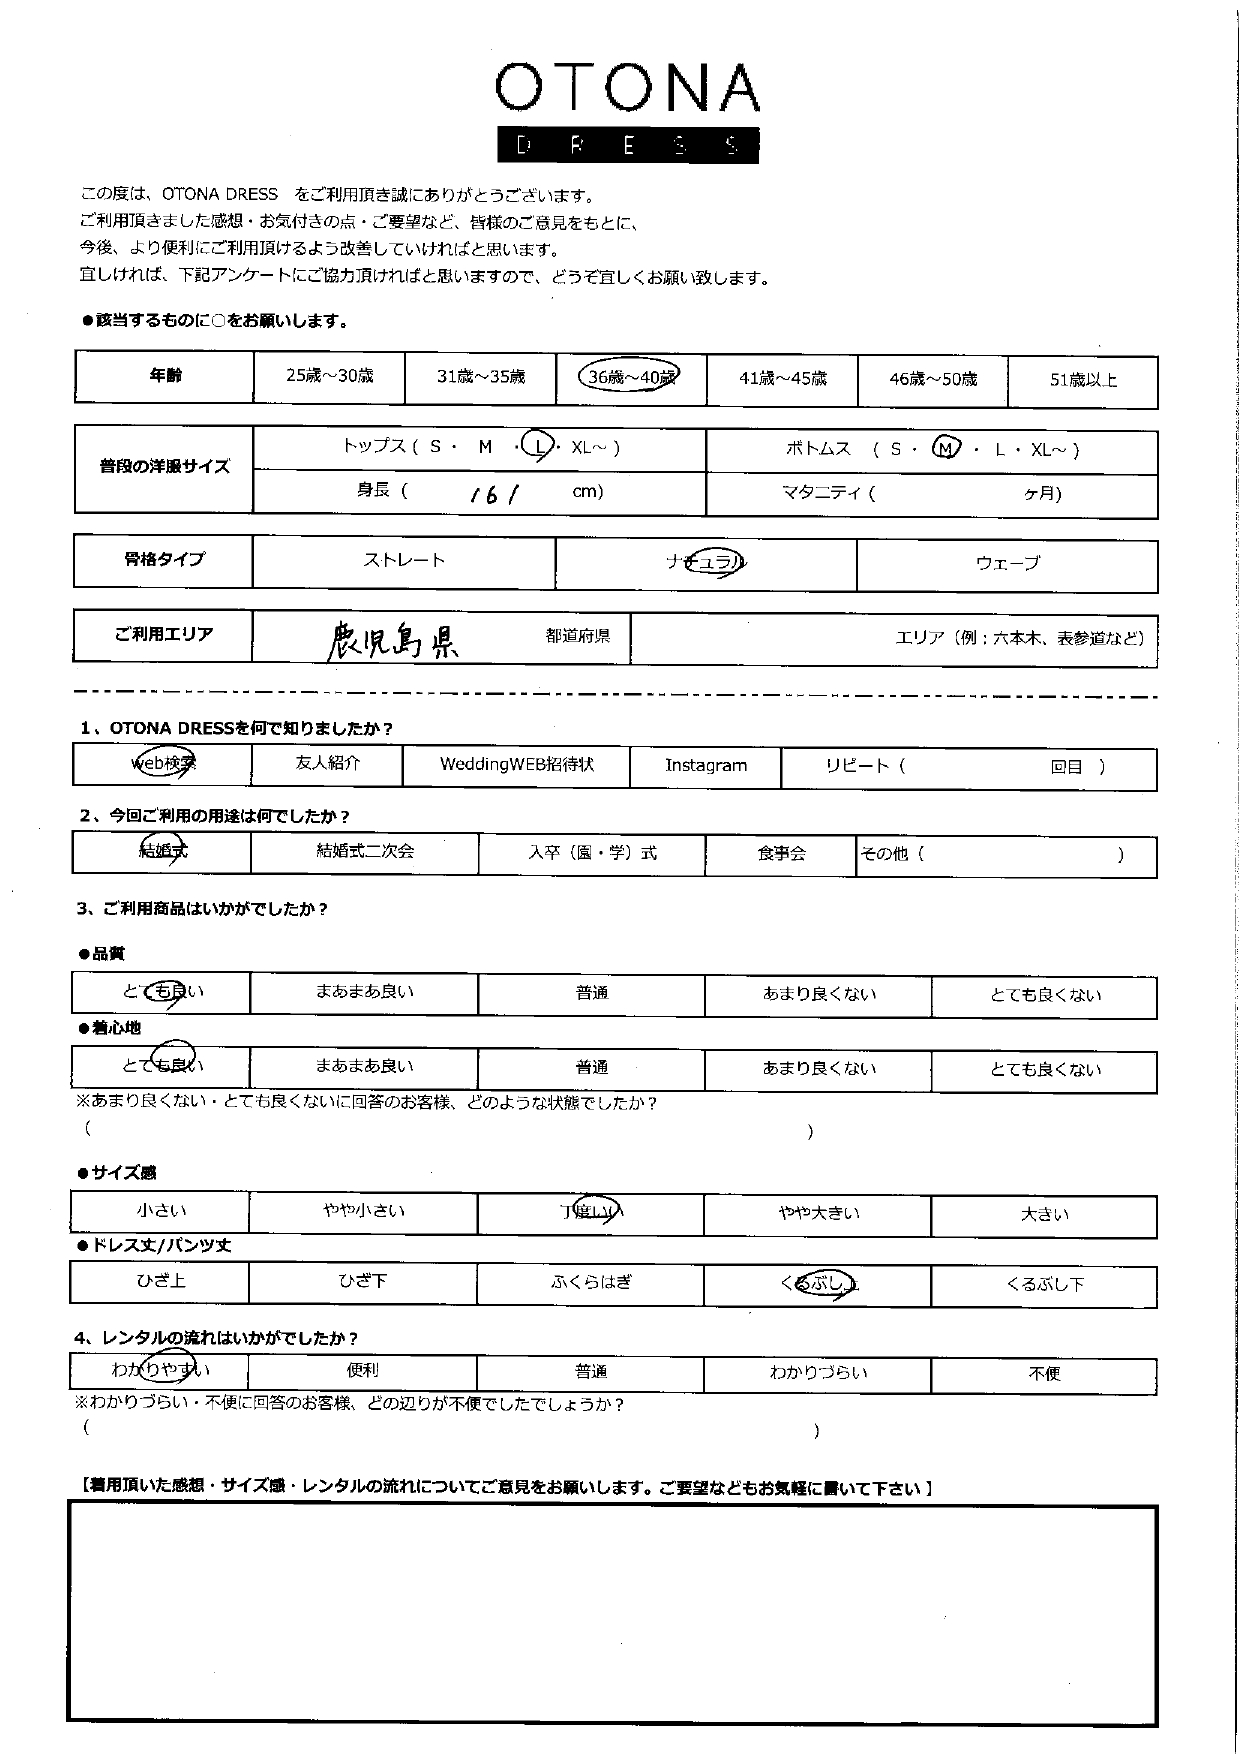 OTONA
DRESS
この度は、OTONA DRESS　をご利用頂き誠にありがとうございます。
ご利用頂きました感想・お気付きの点・ご要望など、皆様のご意見をもとに、
今後、より便利にご利用頂けるよう改善していければと思います。
宜しければ、下記アンケートにご協力頂ければと思いますので、どうぞ宜しくお願い致します。
●該当するものに○をお願いします。
年齢 25歳～30歳 31歳～35歳 36歳～40歳 41歳～45歳 46歳～50歳 51歳以上
普段の洋服サイズ トップス ( S ・ M ・ L ・ XL～ ) ボトムス ( S ・ M ・ L ・ XL～ )
身長 ( 161 cm) マタニティ ( ヶ月)
骨格タイプ ストレート ナチュラル ウェーブ
ご利用エリア 鹿児島県 都道府県 エリア（例：六本木、表参道など）
1、OTONA DRESSを何で知りましたか？
web検索 友人紹介 WeddingWEB招待状 Instagram リピート ( 回目 )
2、今回ご利用の用途は何でしたか？
結婚式 結婚式二次会 入卒（園・学）式 食事会 その他 ( )
3、ご利用商品はいかがでしたか？
●品質
とても良い まあまあ良い 普通 あまり良くない とても良くない
●着心地
とても良い まあまあ良い 普通 あまり良くない とても良くない
※あまり良くない・とても良くないに回答のお客様、どのような状態でしたか？
( )
●サイズ感
小さい やや小さい 丁度いい やや大きい 大きい
●ドレス丈/パンツ丈
ひざ上 ひざ下 ふくらはぎ くるぶし上 くるぶし下
4、レンタルの流れはいかがでしたか？
わかりやすい 便利 普通 わかりづらい 不便
※わかりづらい・不便に回答のお客様、どの辺りが不便でしたでしょうか？
( )
【着用頂いた感想・サイズ感・レンタルの流れについてご意見をお願いします。ご要望などもお気軽に書いて下さい】